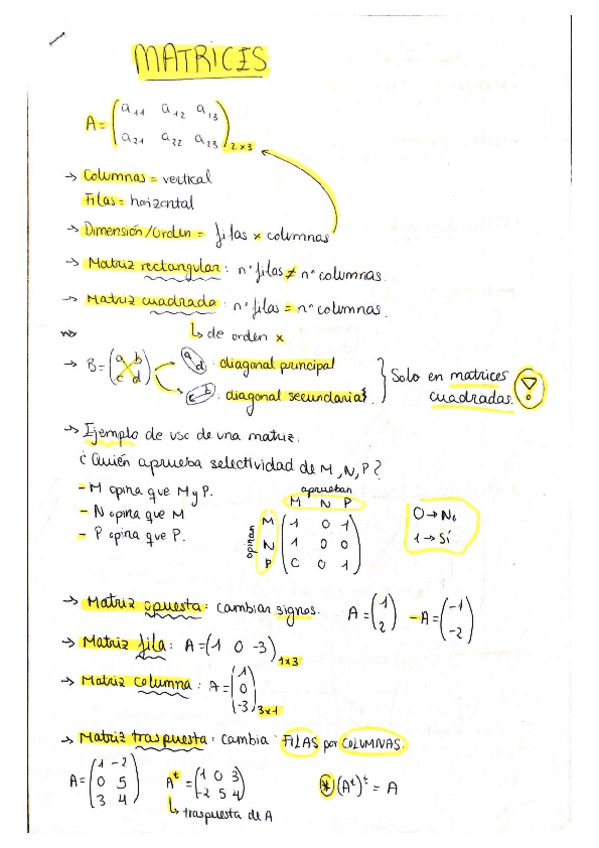 MATRICES
A = ( a11 a12 a13
a21 a22 a23 ) 2x3
→ Columnas = vertical
Filas = horizontal
→ Dimensión/Orden = filas x columnas
→ Matriz rectangular: nº filas ≠ nº columnas.
→ Matriz cuadrada: nº filas = nº columnas.
↳ de orden x
→ B = ( a b
c d ) → a d : diagonal principal
→ c b : diagonal secundaria
} Solo en matrices
cuadradas. !
→ Ejemplo de uso de una matriz.
¿Quién aprueba selectividad de M, N, P?
- M opina que M y P.
- N opina que M
- P opina que P.
aprueban
M N P
opinan
M ( 1 0 1
N 1 0 0
P 0 0 1 )
0 → No
1 → Sí
→ Matriz opuesta: cambiar signos. A = ( 1
2 ) -A = ( -1
-2 )
→ Matriz fila: A = (1 0 -3) 1x3
→ Matriz columna: A = ( 1
0
-3 ) 3x1
→ Matriz traspuesta: cambia FILAS por COLUMNAS.
A = ( 1 -2
0 5
3 4 )
Aᵗ = ( 1 0 3
-2 5 4 )
↳ traspuesta de A
* (Aᵗ)ᵗ = A